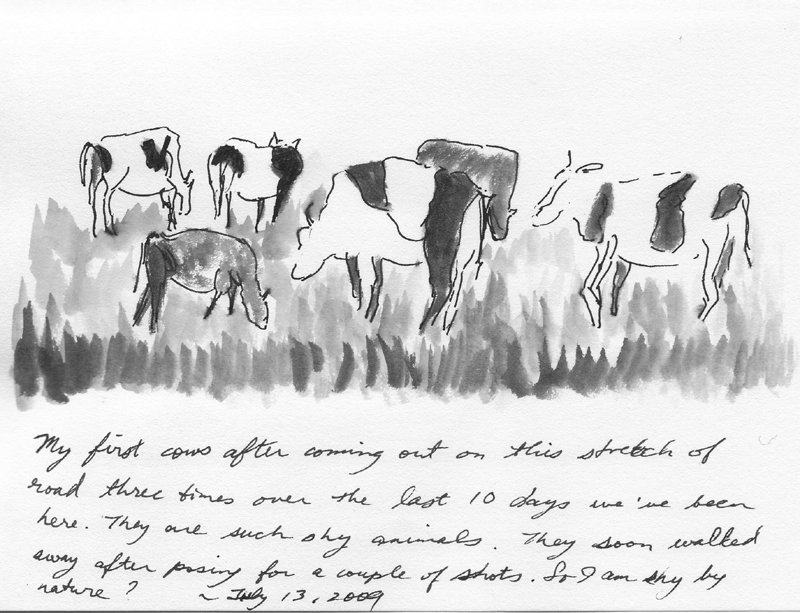 My first cows after coming out on this stretch of
road three times over the last 10 days we've been
here. They are such shy animals. They soon walked
away after posing for a couple of shots. So I am shy by
nature? ~ July 13, 2009